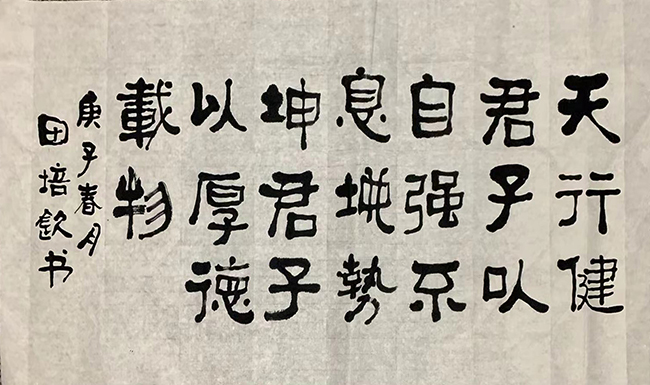 天行健
君子以
自强不
息地势
坤君子
以厚德
載物
庚子春月
田培欽书